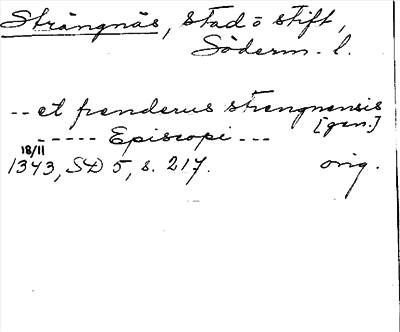 Strängnäs, stad o stift,
Söderm. l.
-- et frenderus strengnensis
[gen.]
----- Episcopi ---
18/11
1343, SD 5, s. 217. orig.